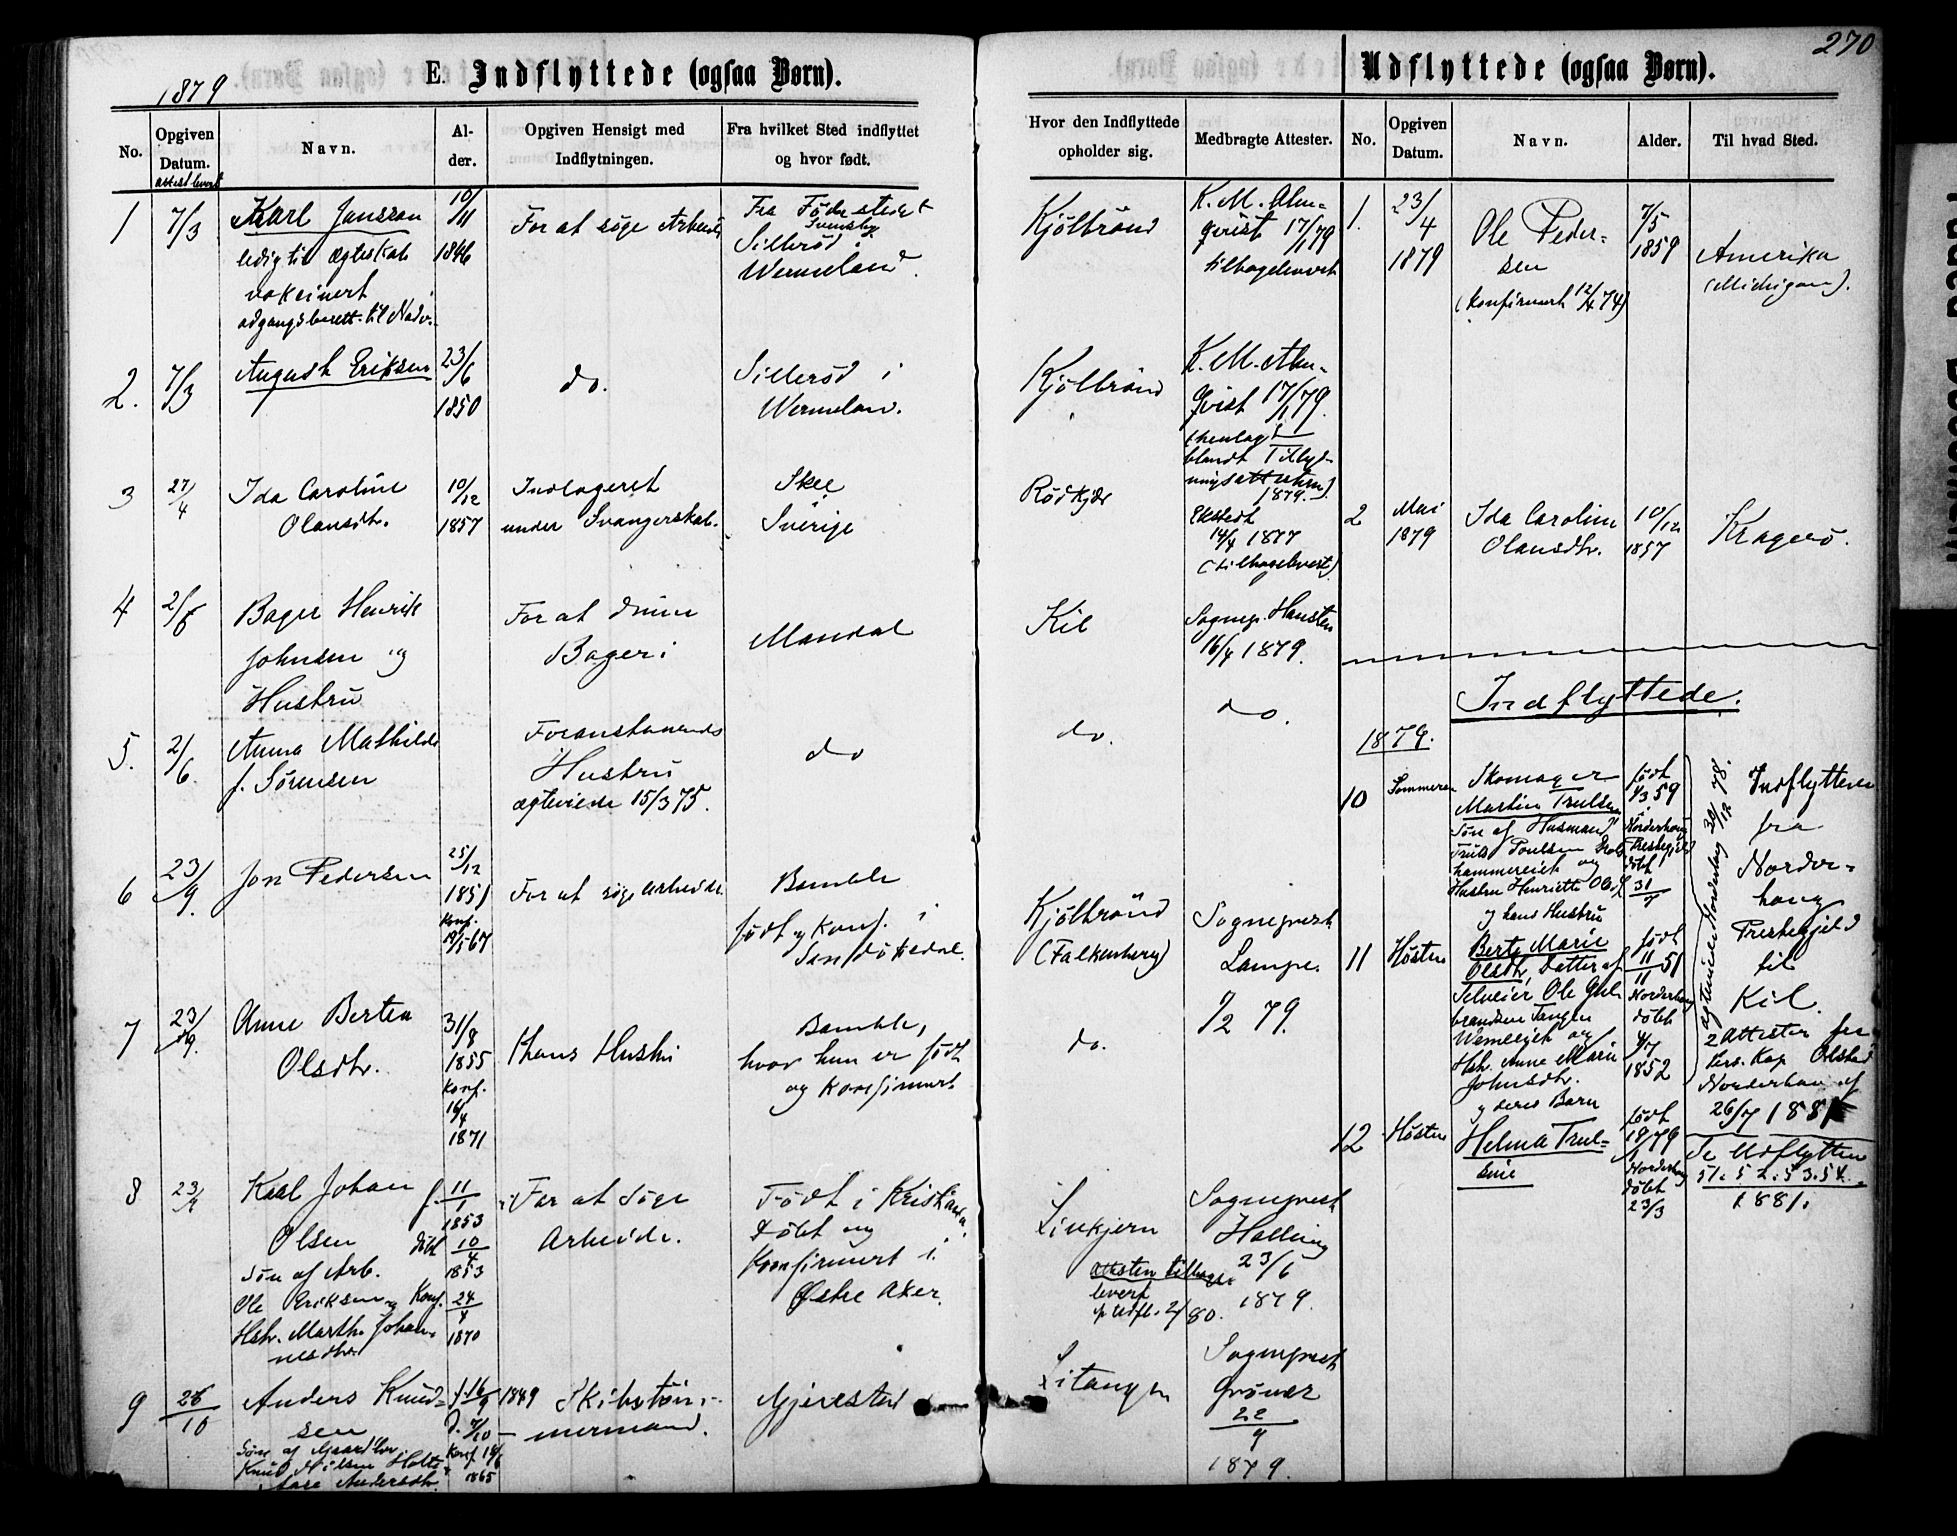 270
E. Indflyttede (ogsaa Børn).
Udflyttede (ogsaa Børn).
1879
No.
Opgiven Datum.
Navn.
Alder.
Opgiven Hensigt med Indflytningen.
Fra hvilket Sted indflyttet og hvor født.
Hvor den Indflyttede opholder sig.
Medbragte Attester.
No.
Opgiven Datum.
Navn.
Alder.
Til hvad Sted.
1
7/3
Karl Jansson
ledig til Ægteskab
vakcinert
adgangsberett. til Nadv.
10/11
1846
For at søge Arbeide
Fra Fødestedet
Sillerød i
Wermeland.
Kjølbrønd
K. M. Alm-
qvist 17/1 79
tilbageleveret
2.
7/3
August Eriksen
23/6
1850
do.
Sillerød i
Wermelan.
Kjølbrønd
K. M. Alm-
qvist 17/1 79.
(henlagt
blandt Tillys-
ningsattestern)
1879.
3
27/4
Ida Caroline
Olausdtr.
10/12
1857
Indlageret
under Svangerskab.
Skee
Sverige
Rødkjær
Ekstedt
14/4 1877
(tilbagelevert)
4
2/6
Bager Henrik
Johnsen og
Hustru
For at drive
Bageri
Mandal
Kil
Sognep. Hansten
16/4 1879.
5.
2/6.
Anna Mathilde
f. Sørensen
Foranstaaende
Hustru
ægteviede 15/3 75.
do
do.
do.
6
23/9.
Jon Pedersen
25/12
1851
Konf.
67
For at søge arbeide.
Bamble
født og konf. i
Sandøkedal.
Kjølbrønd
(Falkenberg)
Sognepræst
Lampe.
7
23/9.
Anne Bertea
Olsdtr.
31/8
1855
Konf.
16/4
1871
Hans Hustru
Bamble,
hvor hun er født
og konfirmert
do.
1/2 79.
8
Karl Johan
Olsen
Søn af Arb.
Ole Eriksen og
Hstr. Marthe Johan-
nesdtr.
f. 11/1
1853
døbt 10/4
1853
Konf. 24/4
1870
For at søge
Arbeide.
Født i Kristiania
Døbt og
Konfirmert i
Østre Aker.
Sinkjern
attesten tilbage-
levert
Udfl. 2/80.
Sognepræst
Halling
23/6
1879.
9
26/10
Anders Knud-
sen
Søn af Gaardbr.
Knud Nilsen Holte
Aase Andersdtr.
f. 16/9 1849
D. 7/10
Konf.
1865
Skibstøm-
mermand.
Gjerestad
Litangen
Sognepræst
Grüner
22/9
1879.
1.
23/4
1879
Ole Peder-
sen
(Konfirmert 12/4 74)
7/5
1859
Amerika
(Michigan).
2
Mai
1879
Ida Caroline
Olausdtr.
10/12
1857
Kragerø.
Indflyttede.
1879.
10
Sommeren
Skomager
Martin Trulsen
Søn af Husmand
Truls Poulsen
hammereiet og
Hustru Henriette Olsd
og hans Hustru
født
4/3 59
Norderhoug
Prestegjeld
døbt
31/7
ægteviede Norderhoug 30/12 78.
Indflyttede
fra
Norder-
houg
Prestegjeld
til
Kil.
2 Attester fra
Pers. Kap Olsted
Norderhoug af
26/7 1881
Se Udflyttede
51. 52. 53. 54.
1881.
11
Høsten
Berte Marie
Olsdtr, Datter af
Selveier Ole Gul-
brandsen Tangen
og
Hstr. Anne Marie
Johnsdtr.
og deres Barn
født
11/11 51
Norderhoug
døbt
4/7
1852
12
Høsten
Helma Trul-
sine
født
19/1 79
Norderhoug
døbt
23/3